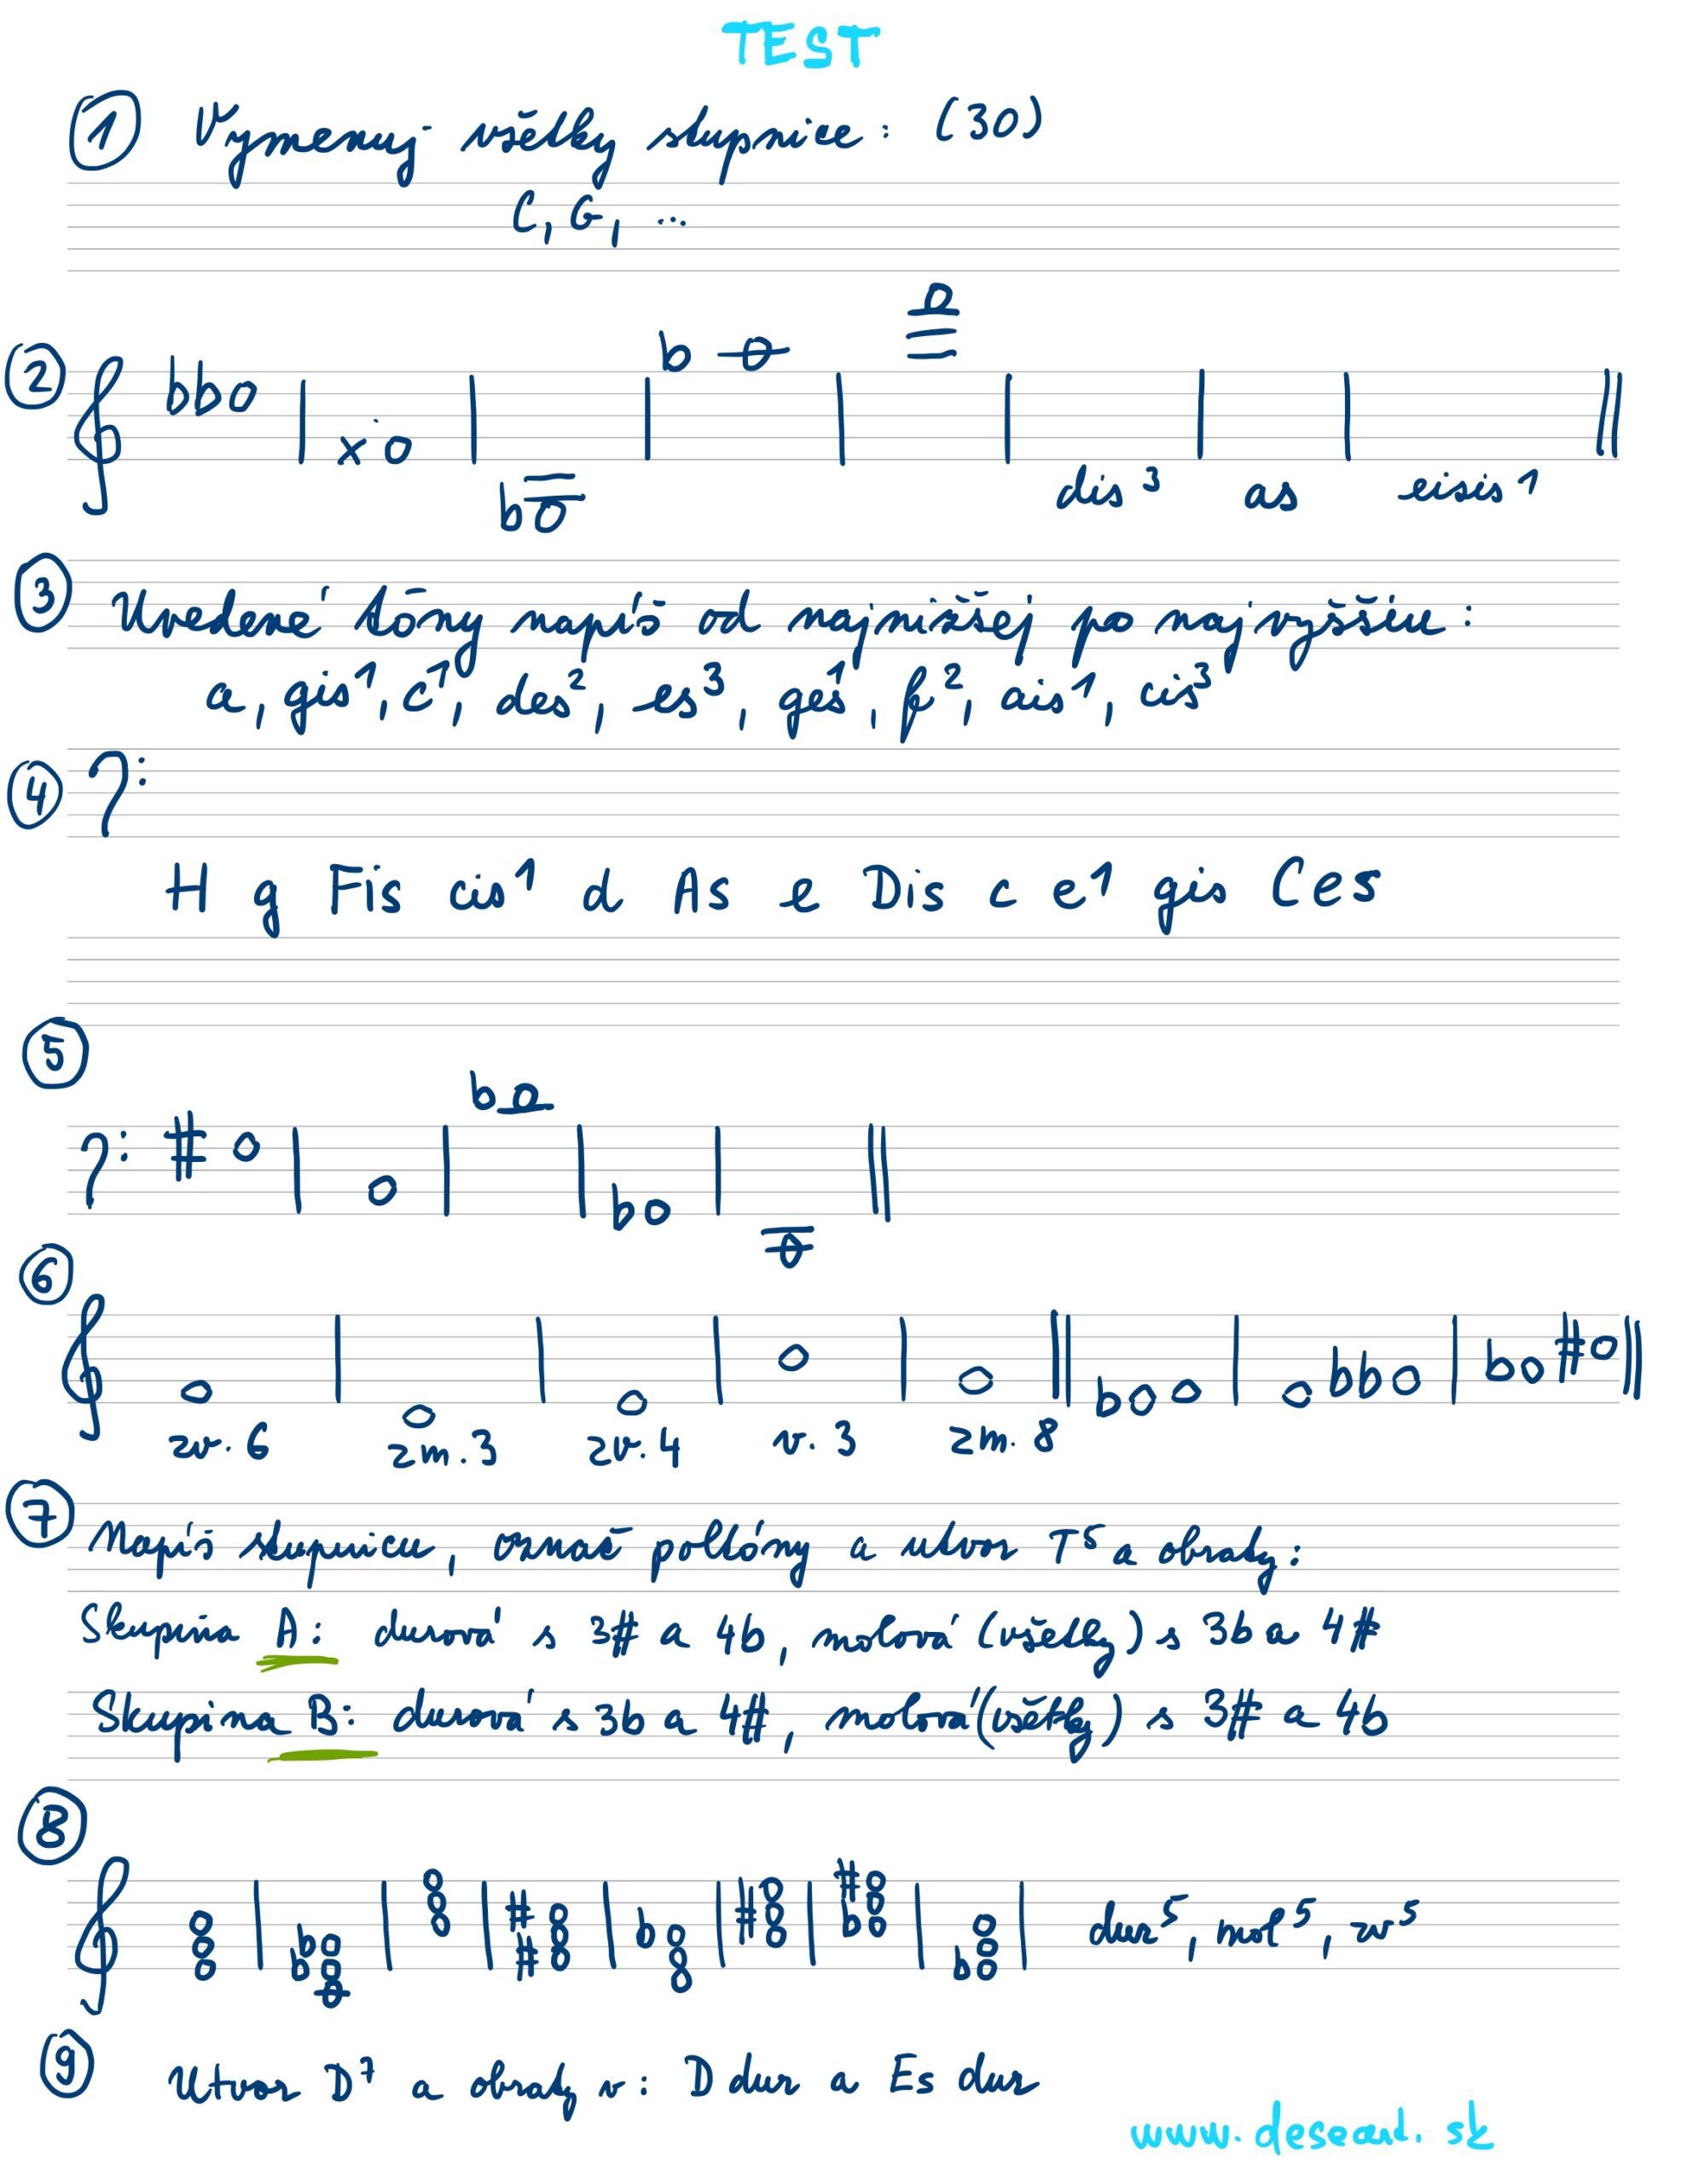 TEST
1 Vymenuj všetky stupnice: (30)
C, G, ...
2 dis³ as eisis¹
3 Uvedené tóny napíš od najnižšej po najvyššiu:
a, gis¹, c¹, des², es³, ges¹, f², ais¹, cis³
4
H g Fis cis¹ d As e Dis c e¹ gis Ces
5
6
zv. 6 zm. 3 zv. 4 v. 3 zm. 8
7 Napíš stupnicu, označ poltóny a utvor T⁵ a obraty:
Skupina A: durová s 3# a 4b, molová (všetky) s 3b a 4#
Skupina B: durová s 3b a 4#, molová (všetky) s 3# a 4b
8
dur⁵, mol⁵, zv⁵
9 Utvor D⁷ a obraty v: D dur a Es dur